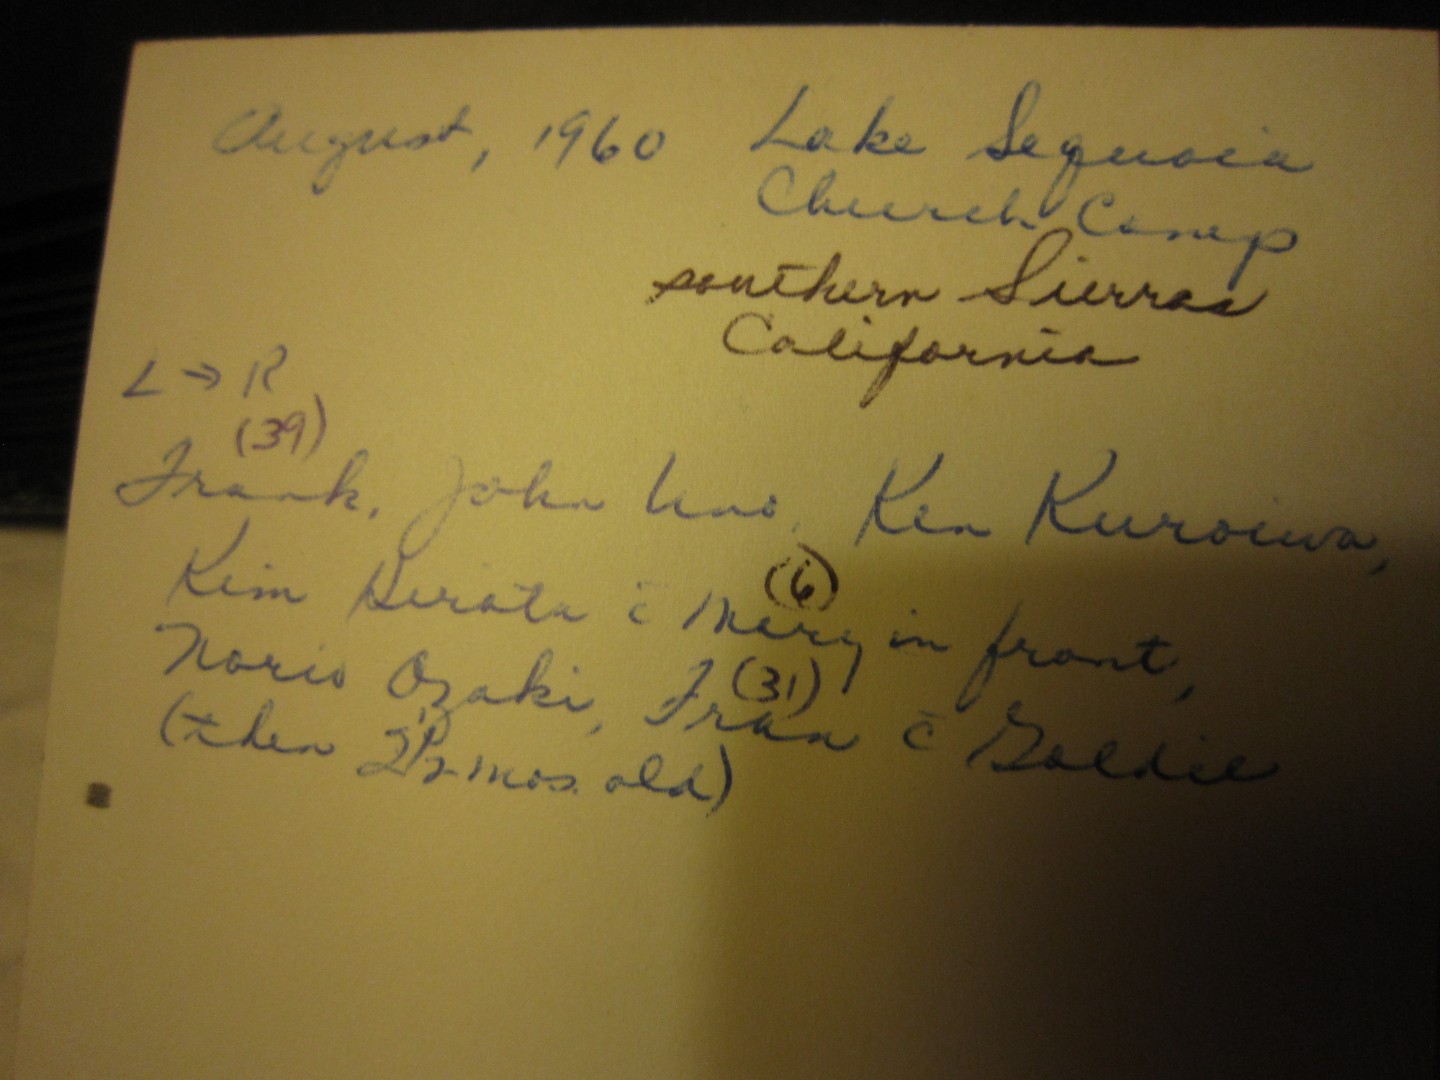 August, 1960 Lake Sequoia
Church Camp
southern Sierras
California
L → R
(39)
Frank, John Uno, Ken Kuroiwa,
(6)
Kim Hirata c̄ Mary in front,
Norio Ozaki, Fran c̄ Goldie
(31)
(then 2½ mos. old)